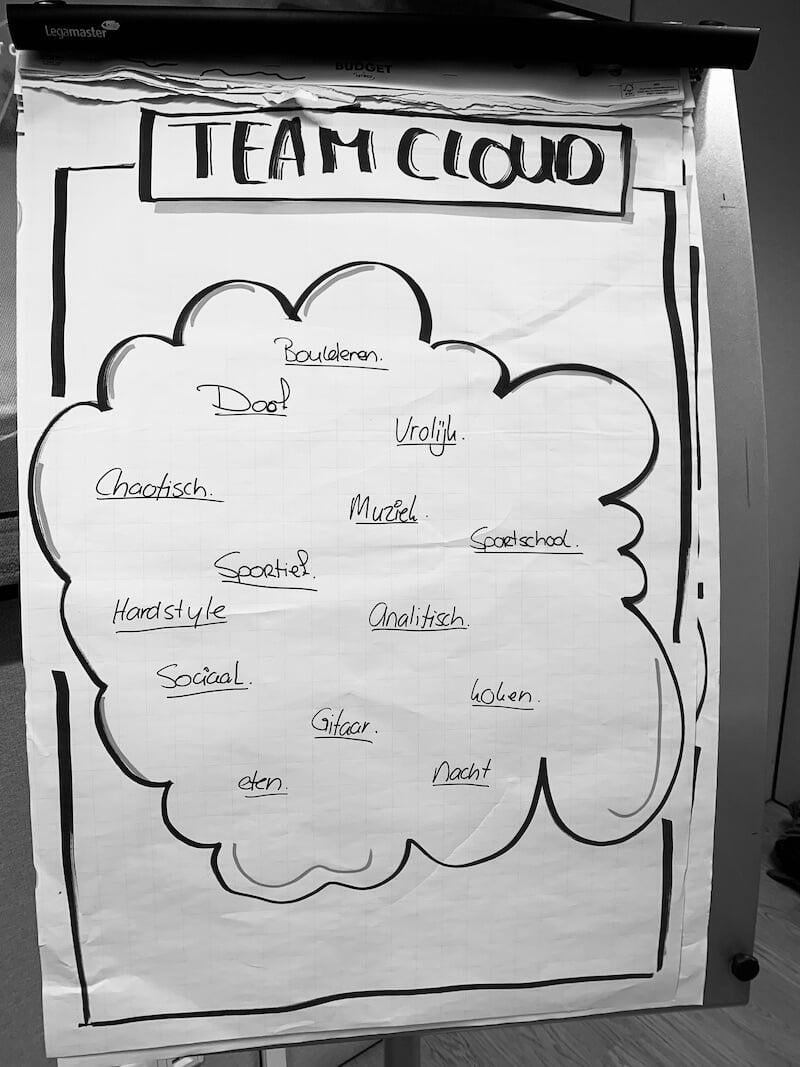 Legamaster
BUDGET
TEAM CLOUD
Boulderen.
Doof
Vrolijk.
Chaotisch.
Muziek.
Sportschool.
Sportief.
Hardstyle
Analitisch.
Sociaal.
koken.
Gitaar.
eten.
Nacht